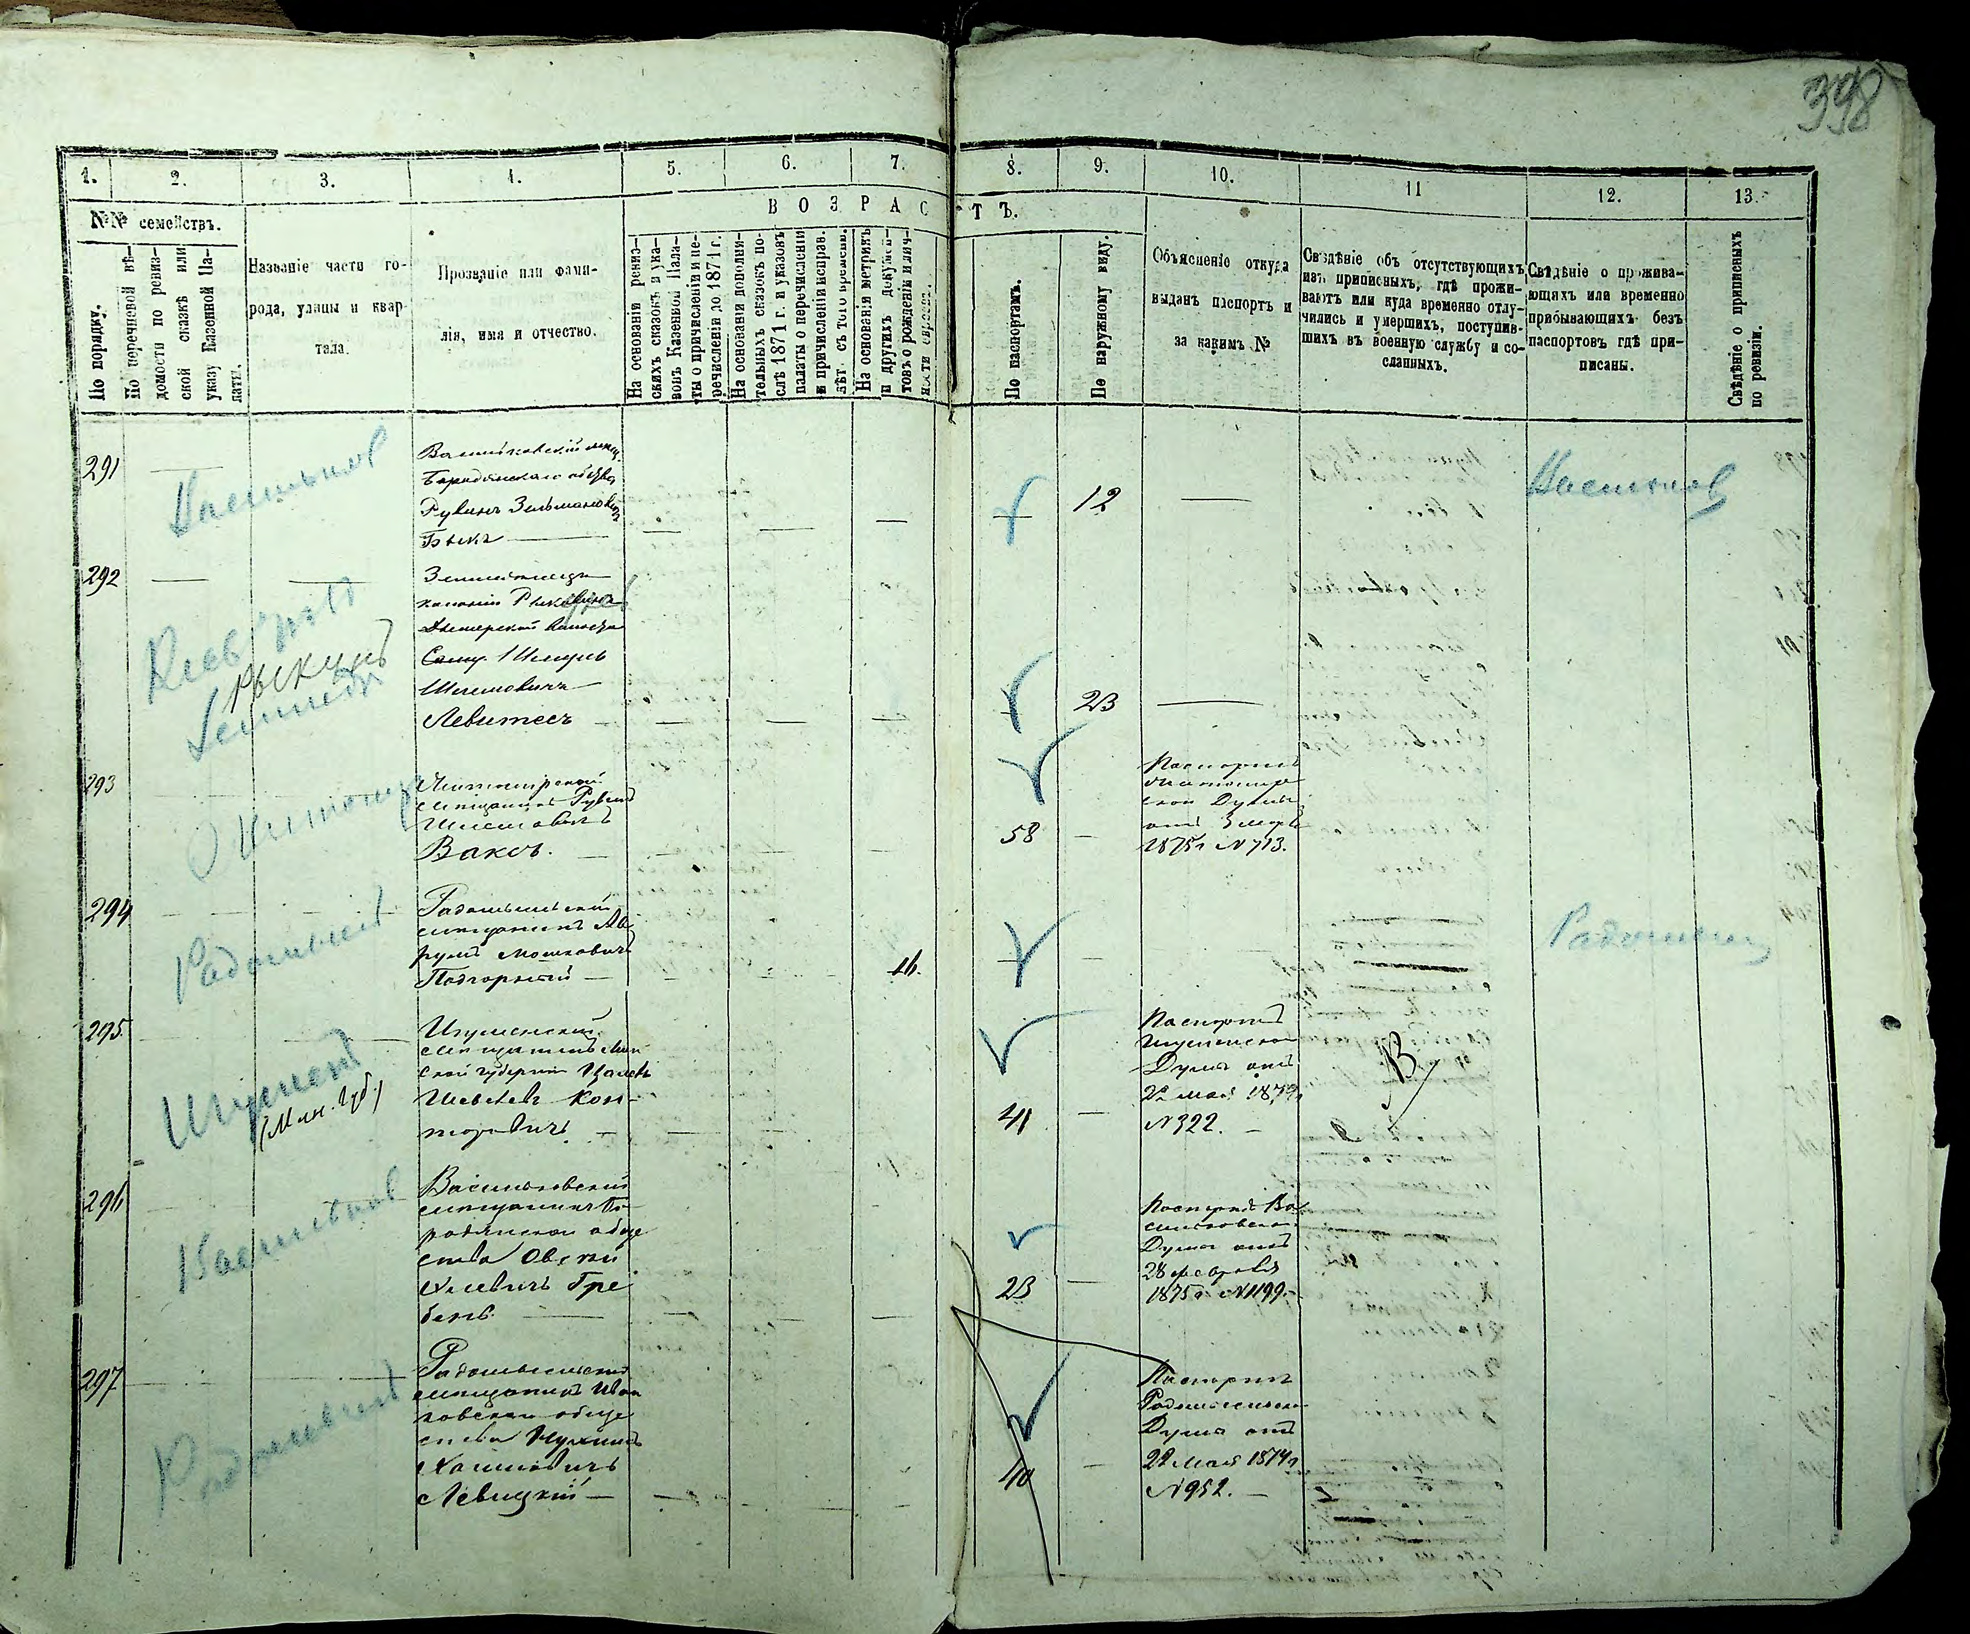 398
1. 2. 3. 4. 5. 6. 7. 8. 9. 10. 11 12. 13.
В О З Р А С Т Ъ.
№№ семействъ.
По порядку.
По перечневой вѣ-
домости по ревиз-
ской сказкѣ или
указу Казенной Па-
латы.
Названіе части го-
рода, улицы и квар-
тала.
Прозваніе или фами-
лія, имя и отчество.
На основаніи ревиз-
скихъ сказокъ и ука-
зовъ Казенной Пала-
ты о причисленіи и пе-
речисленіи до 1871 г.
На основаніи дополни-
тельныхъ сказокъ по-
слѣ 1871 г. и указовъ
палаты о перечисленіи
и причисленіи исправ.
лѣт. съ того времени.
На основаніи метрикъ
и другихъ докумен-
товъ о рожденіи и лич-
ности
По паспортамъ.
По наружному виду.
Объясненіе откуда
выданъ паспортъ и
за какимъ №
Свѣдѣніе объ отсутствующихъ
изъ приписныхъ, гдѣ прожи-
ваютъ или куда временно отлу-
чились и умершихъ, поступив-
шихъ въ военную службу и со-
сланныхъ.
Свѣдѣніе о прожива-
ющихъ или временно
прибывающихъ безъ
паспортовъ гдѣ при-
писаны.
Свѣдѣніе о приписныхъ
по ревизіи.
291
Васильков
Васильковскій мѣщ.
Бородянскаго общества
Рувинъ Зельмановичъ
Быкъ
12
Васильков
292
Киев
Рыкунь
Земледѣлецъ
колоніи
Дымерской волости
Шмуль
Шлемовичъ
Левитесъ
23
293
Житомир
Житомірскій
мѣщанинъ Рувинъ
Шлемовичъ
Ваксъ.
58
Паспортъ
Житомир
ской Думы
отъ 3 мар
1875 г № 713.
294
Радомысль
Радомысльскій
мѣщанинъ Ав
румъ Мошковичъ
Подгорный
16.
Радомысль
295
Игумен
(Мин. губ.)
Игуменскій
мѣщанинъ Мин
ской губерніи
Шевелевъ Кан-
торовичъ
41
Паспортъ
Игуменской
Думы отъ
22 мая
№ 322.
296
Васильков
Васильковскій
мѣщанинъ Бо-
родянскаго обще
ства Овсѣй
Гре
бень.
23
Паспортъ Ва
сильковской
Думы отъ
28 февраля
1875 г № 1199.
297
Радомысль
Радомысльскій
мѣщанинъ Иван
ковскаго обще
ства Нухимъ
Хаимовичъ
Левицкій
40
Паспортъ
Радомысльской
Думы отъ
22 мая 1874 г
№ 952.